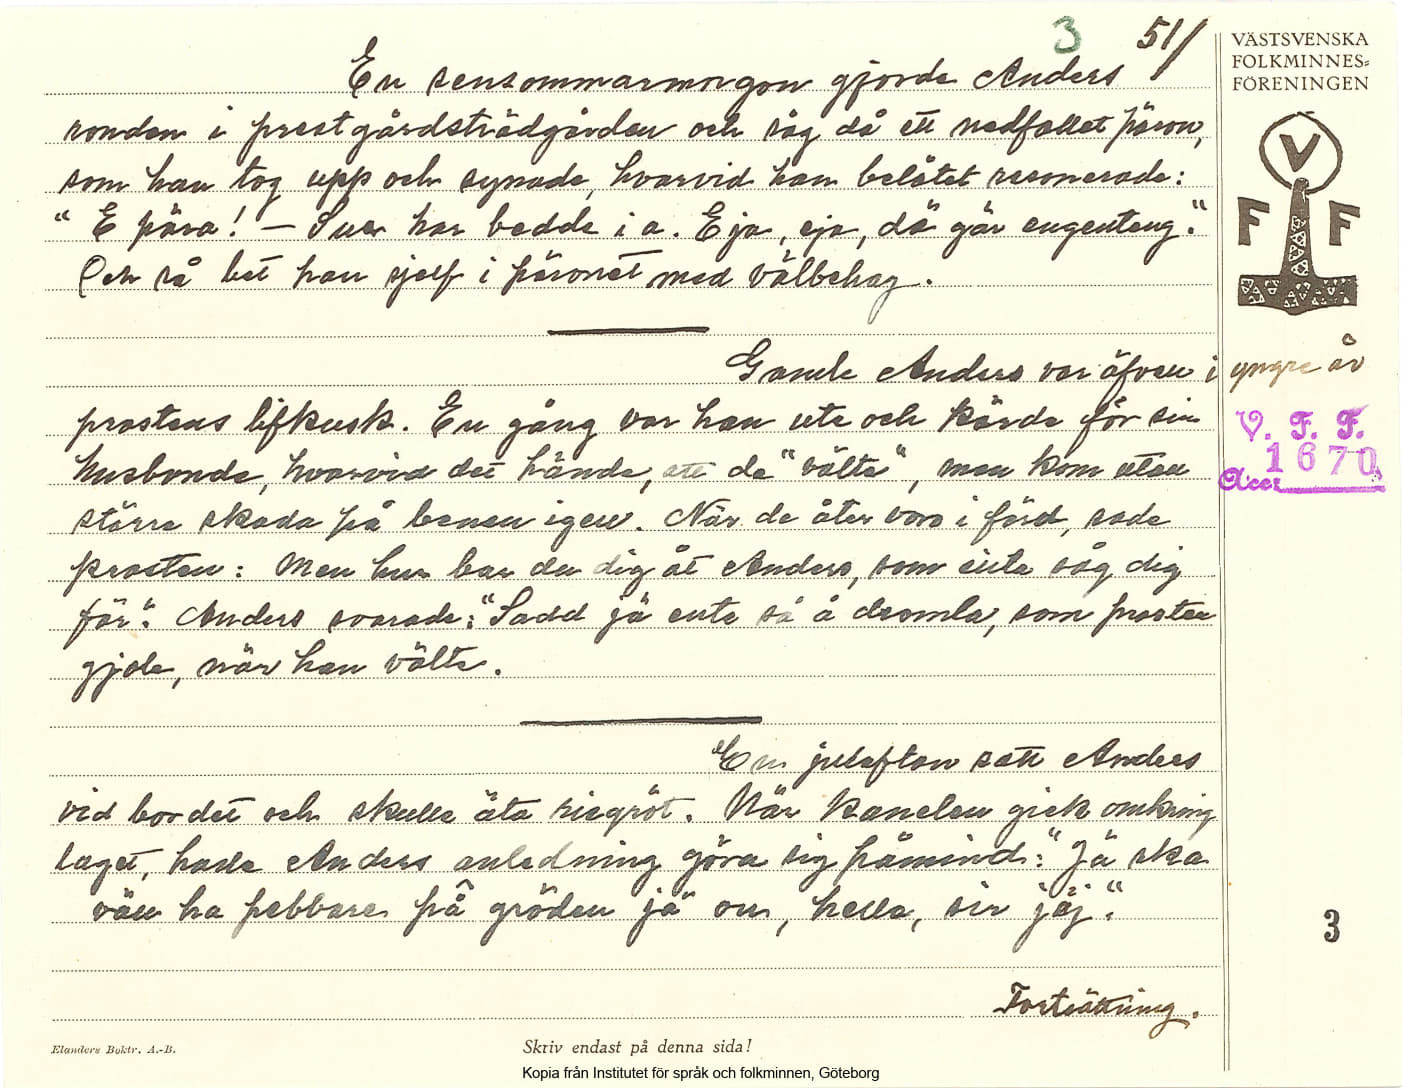 3 51/
VÄSTSVENSKA
FOLKMINNES=
FÖRENINGEN
V
F F
En sensommarmorgon gjorde Anders
ronden i prestgårdsträdgården och såg då ett nedfallet päron,
som han tog upp och synade, hvarvid han belåtet resonerade:
" E pära! — Suer har bedde i a. Eja, eja, dä gär engenteng."
Och så bet han sjelf i päronet med välbehag.
Gamle Anders var äfven i yngre år
prostens lifkusk. En gång var han ute och körde för sin
husbonde, hvarvid det hände, att de "välte", men kom utan
större skada på benen igen. När de åter voro i färd, sade
prosten: Men hur bar du dig åt Anders, som inte såg dig
för". Anders svarade: "Sadd jä ente så å dromla, som prosten
gjole, när han välte.
En julafton satt Anders
vid bordet och skulle äta risgröt. När kanelen gick omkring
laget, hade Anders anledning göra sig påmind: "Jä ska
väu ha pebbaren på gröden jä ou, hella, sir jäj".
Fortsättning.
V. F. F.
Acc. 1670
3
Elanders Boktr. A.-B.
Skriv endast på denna sida!
Kopia från Institutet för språk och folkminnen, Göteborg